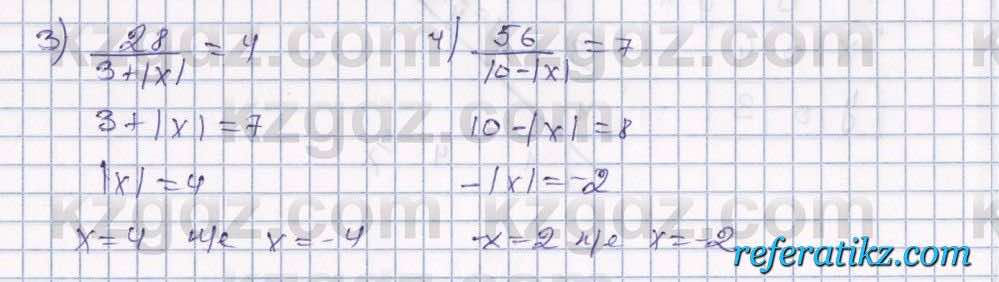 3) 28/(3+|x|) = 4
3+|x|=7
|x|=4
x=4 н/е x=-4
4) 56/(10-|x|) = 7
10-|x|=8
-|x|=-2
x=2 н/е x=-2
kzgaz.com kzgaz.com
kzgaz.com
kzgaz.com kzgaz.com
referatikz.com